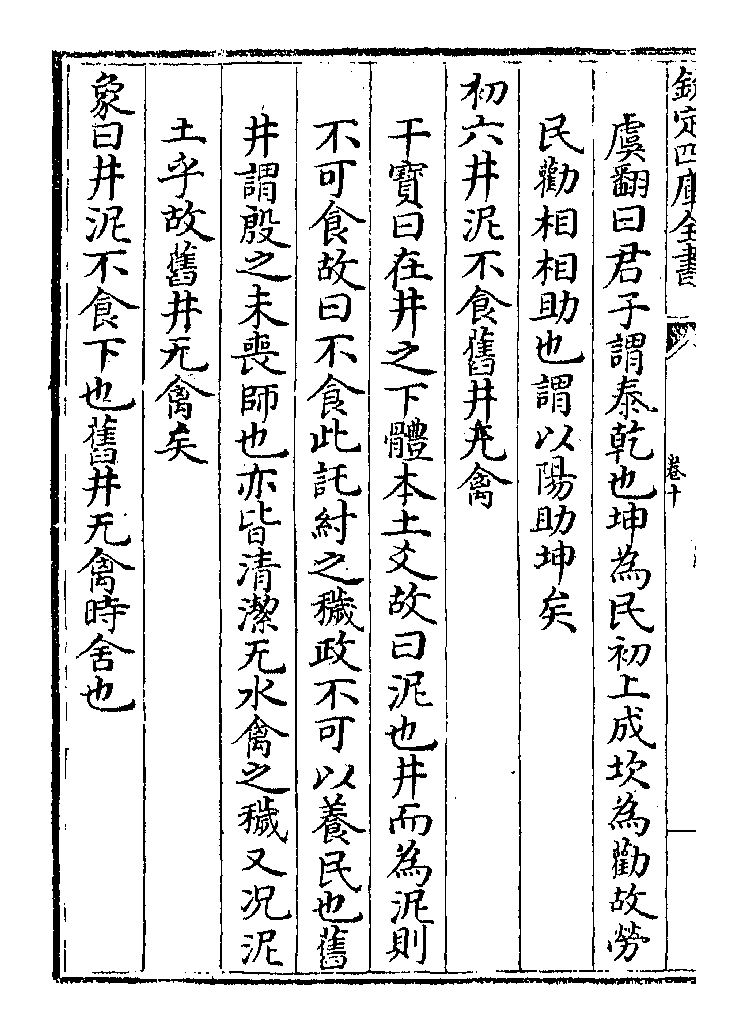 欽定四庫全書
卷十
虞翻曰君子謂泰乾也坤為民初上成坎為勸故勞
民勸相相助也謂以陽助坤矣
初六井泥不食舊井无禽
干寶曰在井之下體本土爻故曰泥也井而為泥則
不可食故曰不食此託紂之穢政不可以養民也舊
井謂殷之未喪師也亦皆清潔无水禽之穢又况泥
土乎故舊井无禽矣
象曰井泥不食下也舊井无禽時舍也